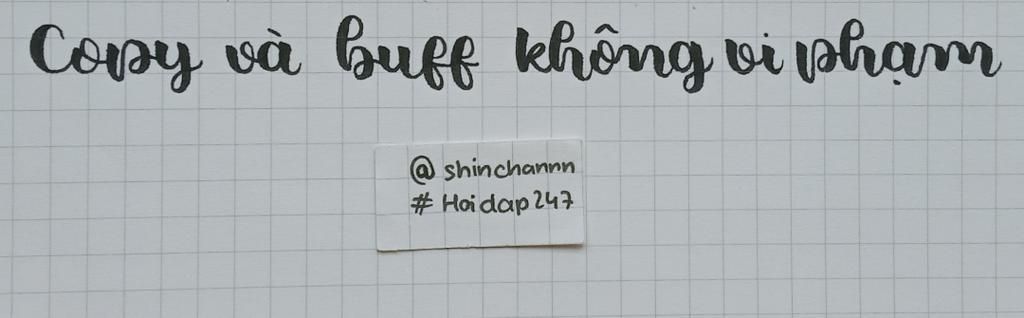 Copy và buff không vi phạm
@ shinchannn
# Hoidap247